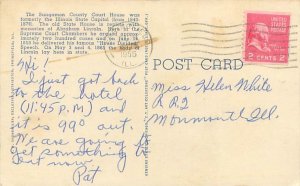 The Sangamon County Court House was
formerly the Illinois State Capitol (from 1840-
1876). The old State House is replete with
memories of Abraham Lincoln. Here in the
Supreme Court Chambers he argued approxi-
mately two hundred cases and on June 16,
1858 he delivered his famous "House Divided
Speech." On May 3 and 4, 1865 the body of
Lincoln lay in state
Hi!
I just got back
to the hotel
(11:45 P.M) and
it is 99° out.
We are going to
get something to
eat now.
Pat
POST CARD
2 CENTS 2
Miss Helen White
R R 2
Monmouth Ill.